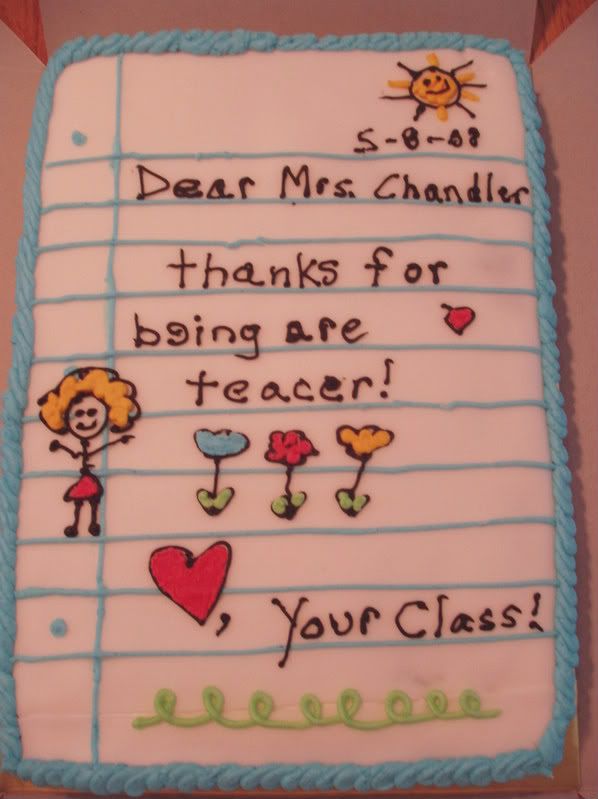 5-8-08
Dear Mrs. Chandler
thanks for
being are
teacer!
, Your Class!